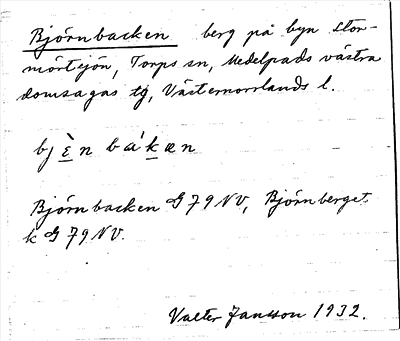 Björnbacken berg på byn Stor-
mörtsjön, Torps sn, Medelpads västra
domsagas tg, Västernorrlands l.
bjè̱n báḵæn
Björnbacken G79NV, Björnberget
k G79NV.
Valter Jansson 1932.